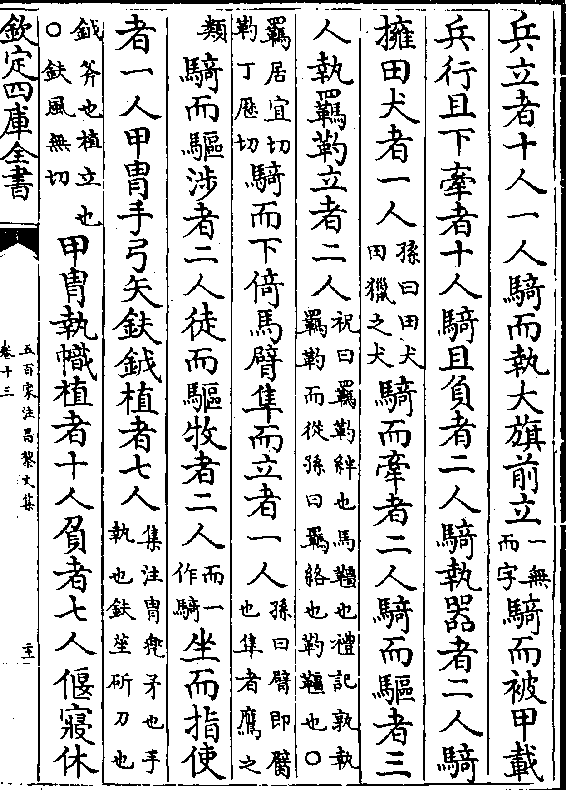 兵立者十人一人騎而執大旗前立一無而字騎而被甲載
兵行且下牽者十人騎且負者二人騎執器者二人騎
擁田犬者一人孫曰田犬田獵之犬騎而牽者二人騎而驅者三
人執羈靮立者二人祝曰羈靮絆也馬韁也禮記孰執羈靮而從孫曰羈絡也靮韁也○
羈居宜切靮丁歷切騎而下倚馬臂隼而立者一人孫曰臂即臑也隼者鷹之
類騎而驅涉者二人徒而驅牧者二人而一作騎坐而指使
者一人甲冑手弓矢鈇鉞植者七人集注冑兜矛也手執也鈇莝斫刀也
鉞斧也植立也○鈇風無切甲冑執幟植者十人負者七人偃寢休
欽定四庫全書
五百家注昌黎文集
卷十三